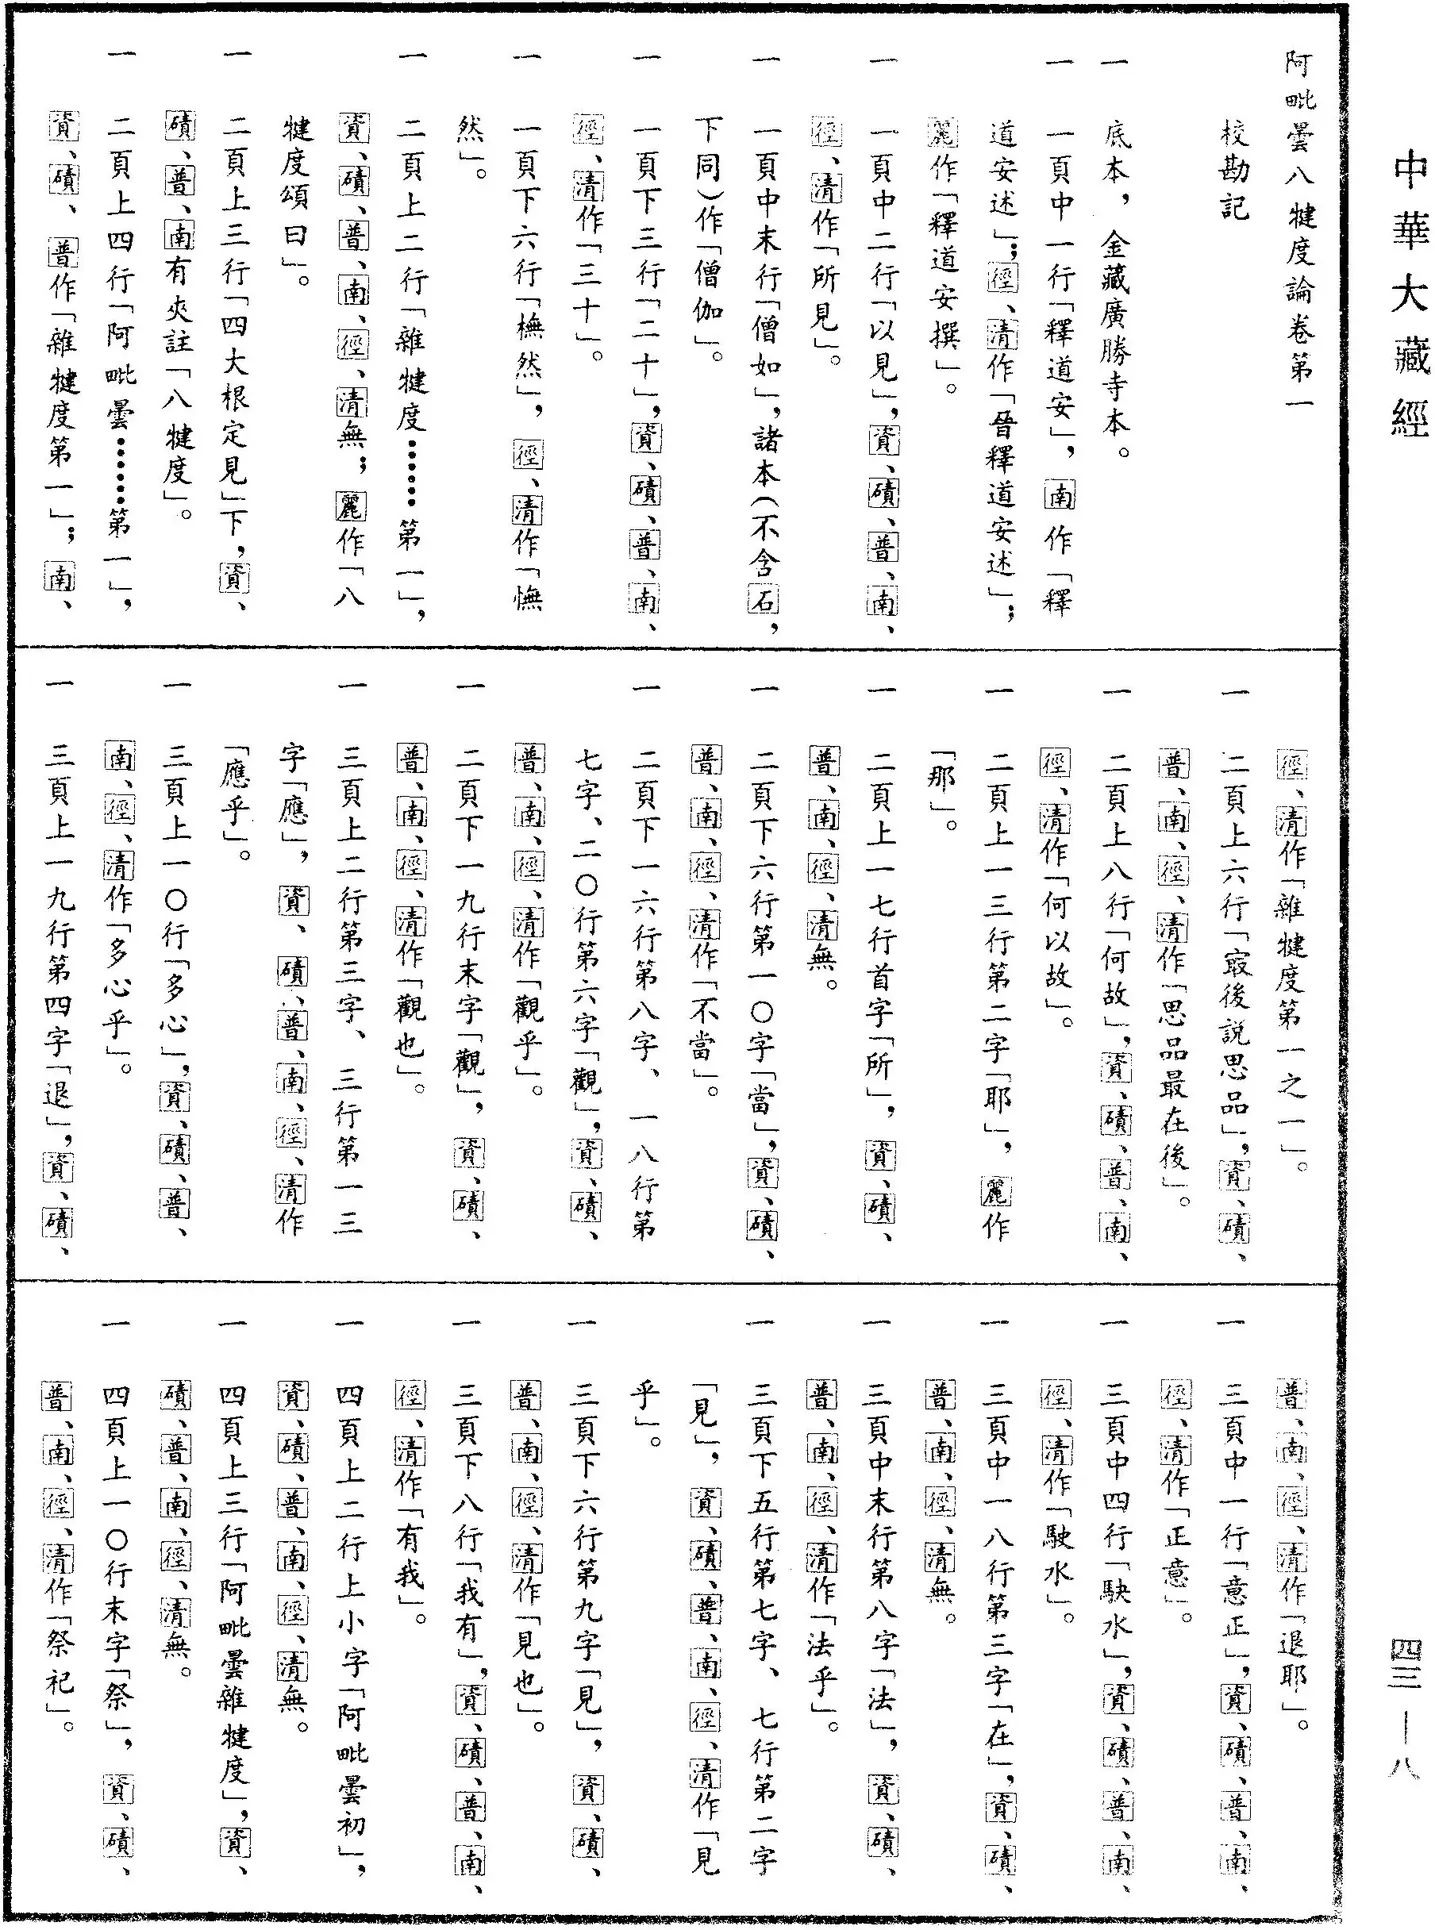 中華大藏經
阿毗曇八犍度論卷第一
校勘記
一 底本，金藏廣勝寺本。
一 一頁中一行「釋道安」，南作「釋
道安述」；徑、清作「晉釋道安述」；
麗作「釋道安撰」。
一 一頁中二行「以見」，資、磧、普、南、
徑、清作「所見」。
一 一頁中末行「僧如」，諸本（不含石，
下同）作「僧伽」。
一 一頁下三行「二十」，資、磧、普、南、
徑、清作「三十」。
一 一頁下六行「橅然」，徑、清作「憮
然」。
一 二頁上二行「雜犍度……第一」，
資、磧、普、南、徑、清無；麗作「八
犍度頌曰」。
一 二頁上三行「四大根定見」下，資、
磧、普、南有夾註「八犍度」。
一 二頁上四行「阿毗曇……第一」，
資、磧、普作「雜犍度第一」；南、
徑、清作「雜犍度第一之一」。
一 二頁上六行「㝡後說思品」，資、磧、
普、南、徑、清作「思品最在後」。
一 二頁上八行「何故」，資、磧、普、南、
徑、清作「何以故」。
一 二頁上一三行第二字「耶」，麗作
「那」。
一 二頁上一七行首字「所」，資、磧、
普、南、徑、清無。
一 二頁下六行第一〇字「當」，資、磧、
普、南、徑、清作「不當」。
一 二頁下一六行第八字、一八行第
七字、二〇行第六字「觀」，資、磧、
普、南、徑、清作「觀乎」。
一 二頁下一九行末字「觀」，資、磧、
普、南、徑、清作「觀也」。
一 三頁上二行第三字、三行第一三
字「應」，資、磧、普、南、徑、清作
「應乎」。
一 三頁上一〇行「多心」，資、磧、普、
南、徑、清作「多心乎」。
一 三頁上一九行第四字「退」，資、磧、
普、南、徑、清作「退耶」。
一 三頁中一行「意正」，資、磧、普、南、
徑、清作「正意」。
一 三頁中四行「駃水」，資、磧、普、南、
徑、清作「駛水」。
一 三頁中一八行第三字「在」，資、磧、
普、南、徑、清無。
一 三頁中末行第八字「法」，資、磧、
普、南、徑、清作「法乎」。
一 三頁下五行第七字、七行第二字
「見」，資、磧、普、南、徑、清作「見
乎」。
一 三頁下六行第九字「見」，資、磧、
普、南、徑、清作「見也」。
一 三頁下八行「我有」，資、磧、普、南、
徑、清作「有我」。
一 四頁上二行上小字「阿毗曇初」，
資、磧、普、南、徑、清無。
一 四頁上三行「阿毗曇雜犍度」，資、
磧、普、南、徑、清無。
一 四頁上一〇行末字「祭」，資、磧、
普、南、徑、清作「祭祀」。
四三—八